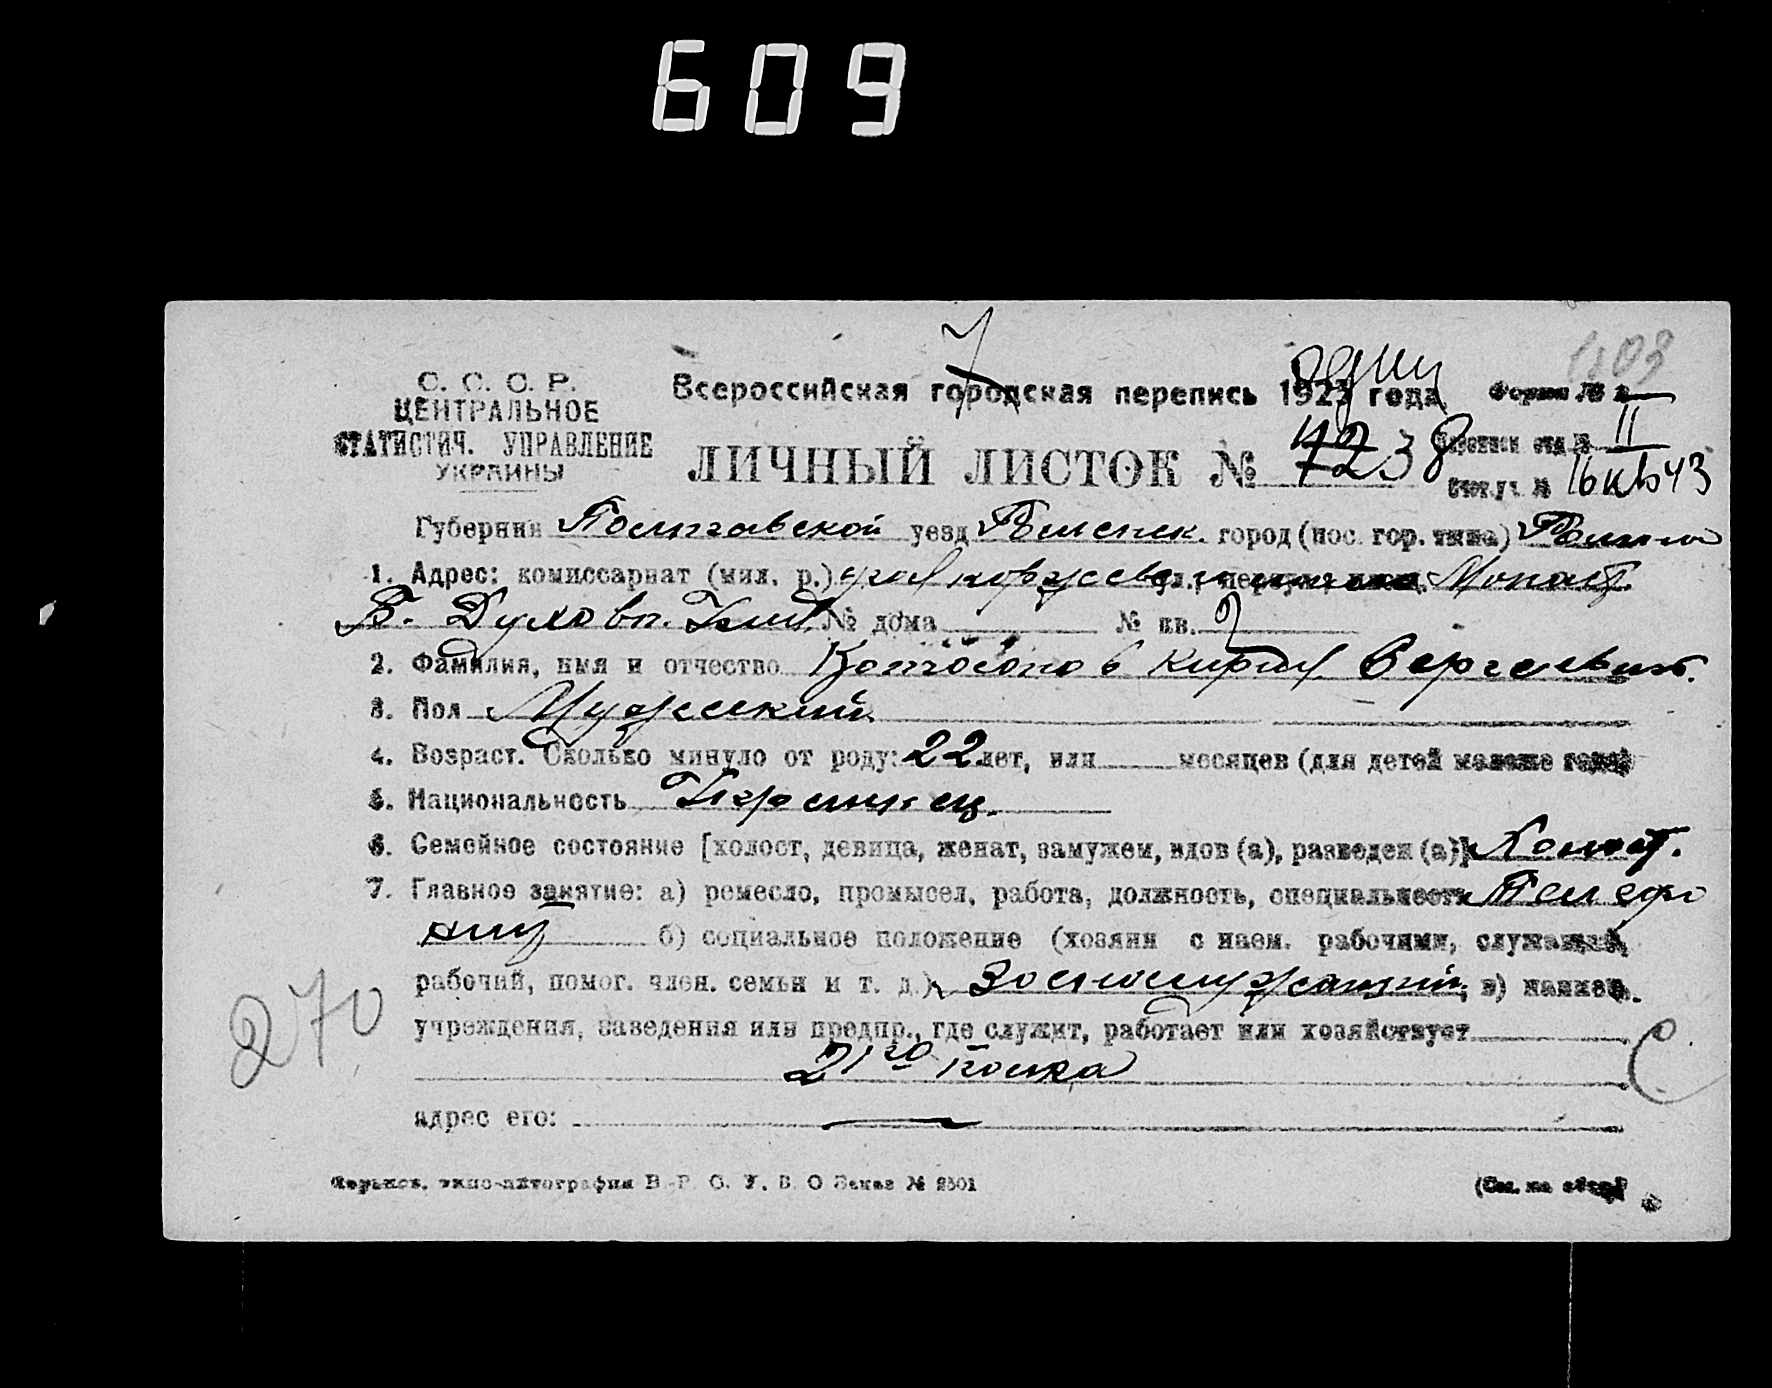 609
С. С. С. Р.
ЦЕНТРАЛЬНОЕ
СТАТИСТИЧ. УПРАВЛЕНИЕ
УКРАИНЫ
Всероссийская городская перепись 1923 года
один
Форма №
ЛИЧНЫЙ ЛИСТОК № 38
II
Счет. уч. № 16 43
Губерния Полтавской уезд Роменск. город (пос. гор. типа) Ромны
1. Адрес: комиссариат (мил. р.)
Б. Духовн. № дома № кв. 2
2. Фамилия, имя и отчество Кирил Сергеевич.
3. Пол Мужеский
4. Возраст. Сколько минуло от роду: 22 лет, или месяцев (для детей моложе года)
5. Национальность Украинец.
6. Семейное состояние [холост, девица, женат, замужем, вдов (а), разведен (а)] Холост.
7. Главное занятие: а) ремесло, промысел, работа, должность, специальность Телефо
нист б) социальное положение (хозяин с наем. рабочими, служащий,
рабочий, помог. член. семьи и т. д.) Военнослужащий, в) наимен.
учреждения, заведения или предпр., где служит, работает или хозяйствует
21го полка
адрес его: —
270
Харьков. типо-литография В. Р. С. У. В. О Заказ № 2501
(См. на обор.)